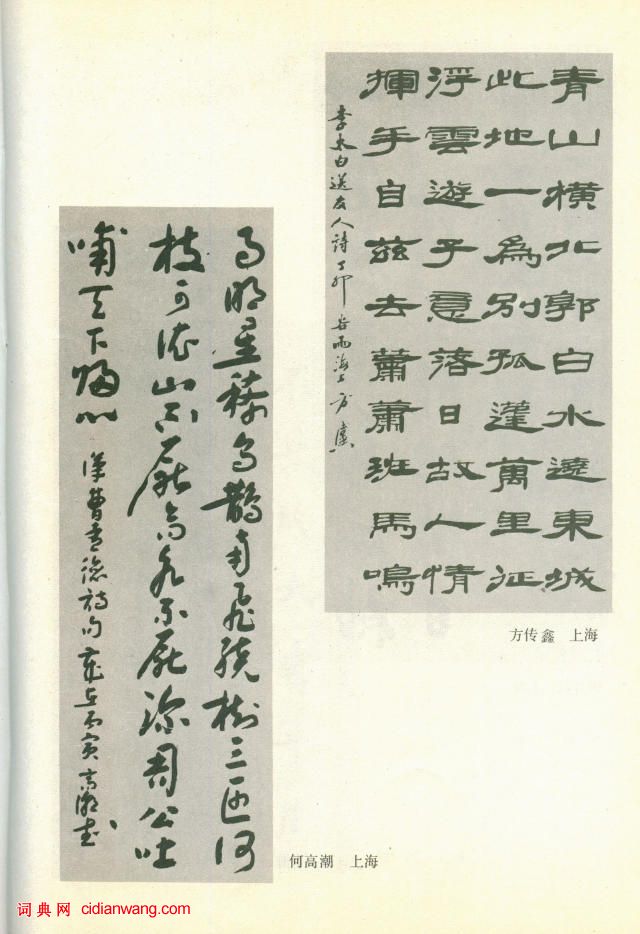 青山橫北郭白水遶東城
此地一為別孤蓬萬里征
浮雲遊子意落日故人情
揮手自茲去蕭蕭班馬鳴
李太白送友人詩丁卯谷雨海上方
方传鑫 上海
月明星稀烏鵲南飛繞樹三匝何
枝可依山不厭高水不厭深周公吐
哺天下歸心
漢曹孟德詩句歲在丙寅高潮書
何高潮 上海
词典网 cidianwang.com